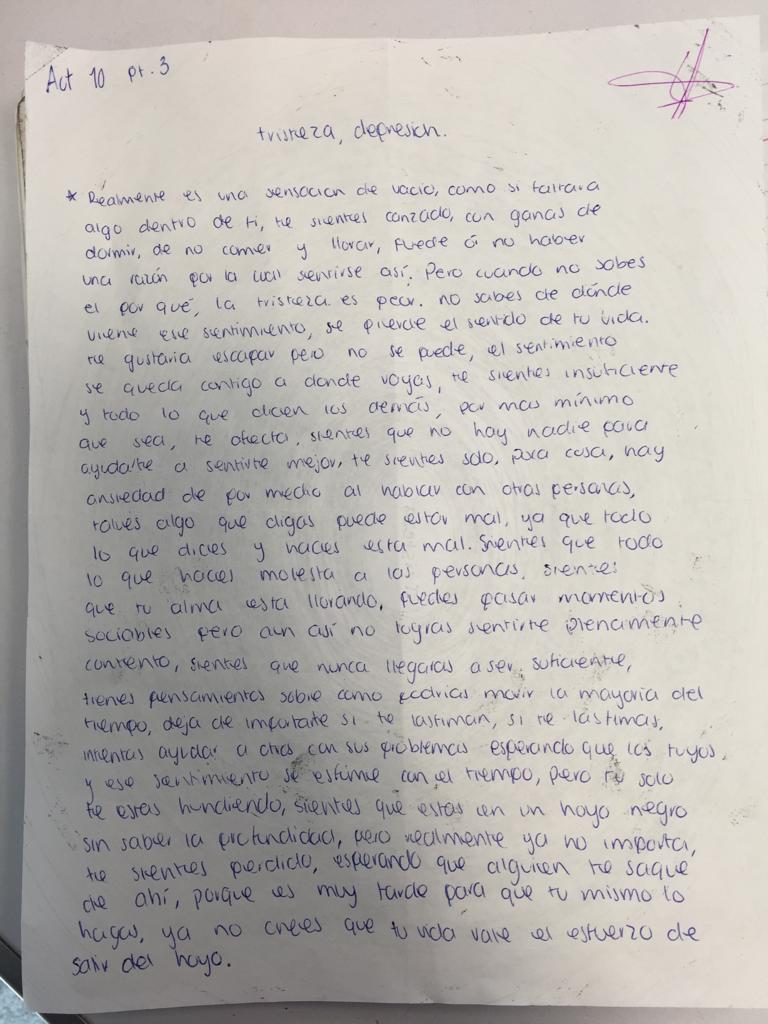 Act 10 pt. 3
tristeza, depresion.
* Realmente es una sensacion de vacio, como si faltara
algo dentro de ti, te sientes canzado, con ganas de
dormir, de no comer y llorar, Puede ó no haber
una razón por la cual sentirse así. Pero cuando no sabes
el por qué, la tristeza es peor. no sabes de dónde
viene ese sentimiento, se pierde el sentido de tu vida.
te gustaria escapar pero no se puede, el sentimiento
se queda contigo a donde vayas, te sientes insuficiente
y todo lo que dicen los demás, por mas mínimo
que sea, te afecta, sientes que no hay nadie para
ayudarte a sentirte mejor, te sientes solo, poca cosa, hay
ansiedad de por medio al hablar con otras personas,
talves algo que digas puede estar mal, ya que todo
lo que dices y haces esta mal. Sientes que todo
lo que haces molesta a las personas, sientes
que tu alma esta llorando, puedes pasar momentos
sociables pero aun así no logras sentirte plenamente
contento, sientes que nunca llegaras a ser suficiente,
tienes pensamientos sobre como podrias morir la mayoria del
tiempo, deja de importarte si te lastiman, si te lástimas,
intentas ayudar a otros con sus problemas esperando que los tuyos
y ese sentimiento se esfume con el tiempo, pero tu solo
te estas hundiendo, sientes que estas en un hoyo negro
sin saber la profundidad, pero realmente ya no importa,
te sientes perdido, esperando que alguien te saque
de ahí, porque es muy tarde para que tu mismo lo
hagas, ya no crees que tu vida vale el esfuerzo de
salir del hoyo.